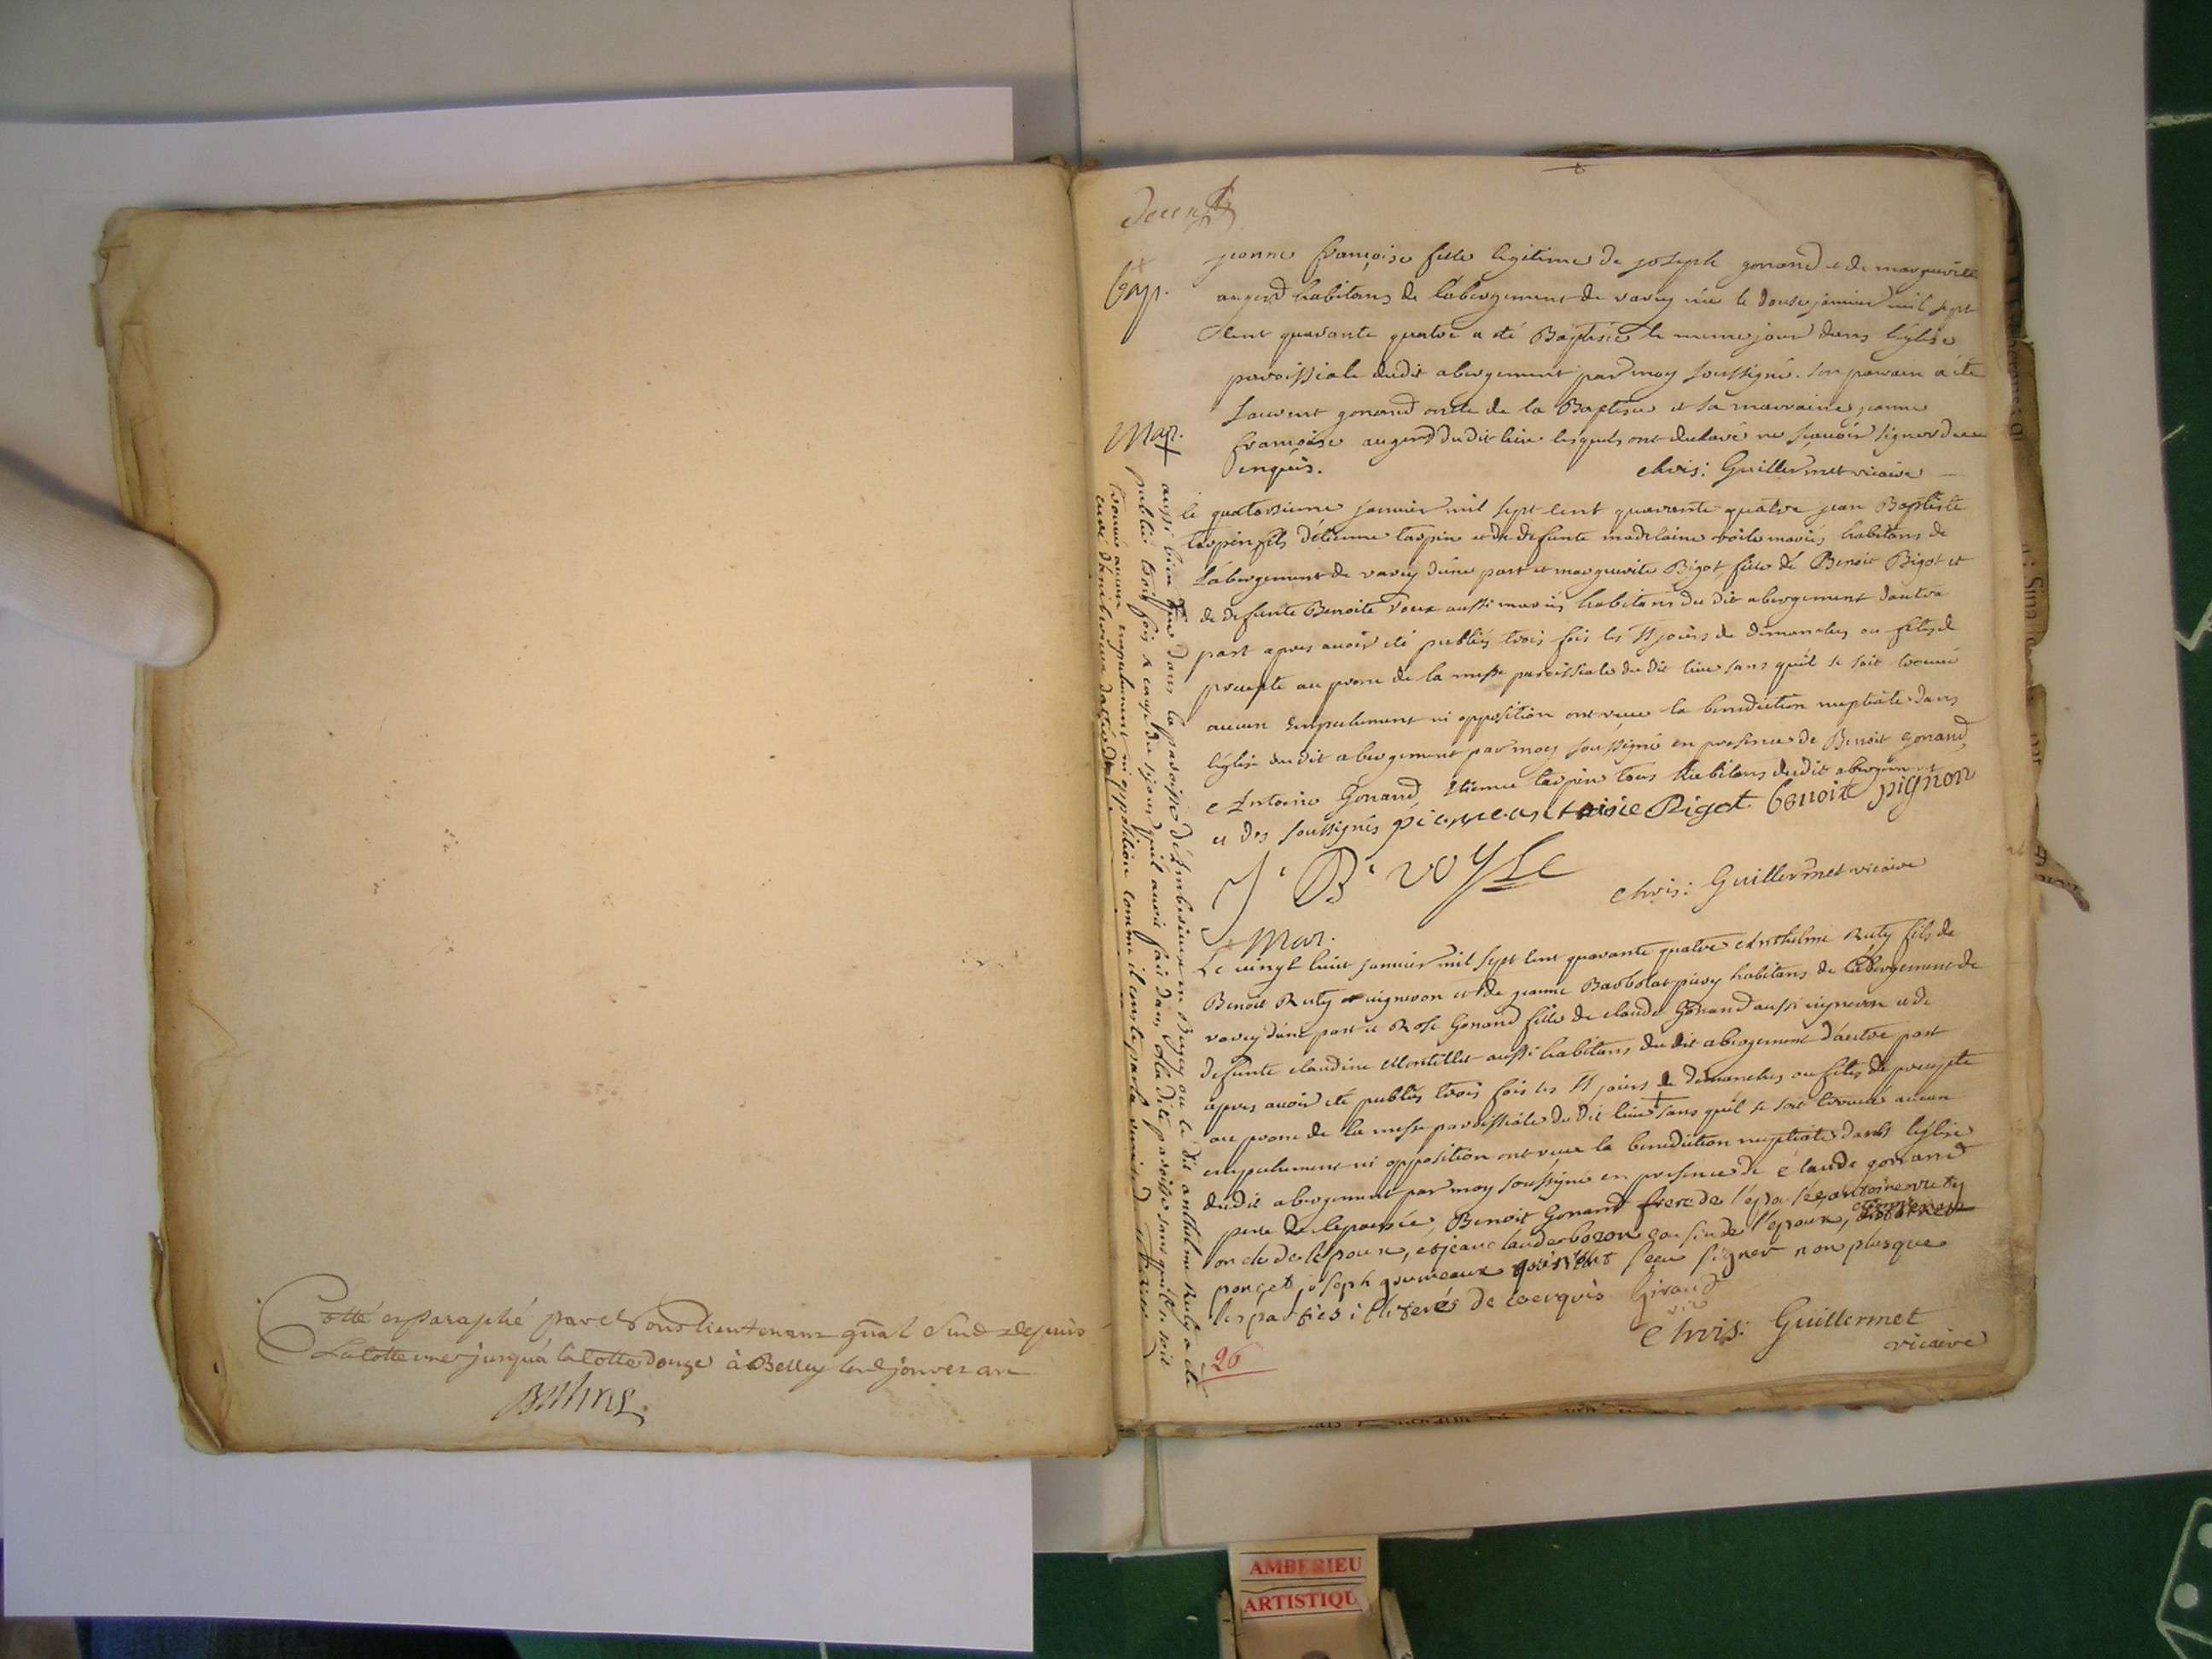 Cotté et paraphé par Nous lieutenant gñal depuis
La cotte une jusqu'à la cotte douze à Belley an
Bap.
jeanne françoise fille legitime de joseph gonand et de marguerite
augerd habitans de l'abergement de varey née le douse janvier mil sept
cent quarante quatre a été Baptisée le meme jour dans l'église
paroissiale dudit abergement par moy soussigné. son parrain a été
Laurent gonand oncle de la Baptisée et sa marraine jeanne
françoise augerd du dit lieu lesquels ont declaré ne sçavoir signer de ce
enquis. chris: Guillermet vicaire
Mar.
le quatorsieme janvier mil sept cent quarante quatre jean Baptiste
tarpin fils d'étienne tarpin et de defunte madelaine voile mariés habitans de
l'abergement de varey d'une part et marguerite Bigot fille de Benoit Bigot et
de defunte Benoite aussi mariés habitans du dit abergement d'autre
part apres avoir été publiés trois fois les jours de dimanches ou fetes de
precepte au prone de la messe paroissiale du dit lieu sans qu'il se soit trouvé
aucun empeschement ni opposition ont receu la benediction nuptiale dans
l'église du dit abergement par moy soussigné en presence de Benoit gonand,
Antoine Gonand, Etienne tarpin tous habitans dudit abergement
et des soussignés pierre antoine Rigot benoit pignon
J. B. voyle
chris: Guillermet vicaire
Mar.
Le vingt huit janvier mil sept cent quarante quatre Anthelme Ruty fils de
Benoit Ruty vigneron et de jeanne Barbolat piery habitans de l'abergement de
varey d'une part et Rose Gonand fille de claude Gonand aussi vigneron et de
defunte claudine Montillet aussi habitans du dit abergement d'autre part
apres avoir été publiés trois fois les jours de dimanches ou fetes de precepte
au prone de la messe paroissiale du dit lieu + sans qu'il se soit trouvé aucun
empechement ni opposition ont receu la benediction nuptiale dans l'église
dudit abergement par moy soussigné en presence de claude gonand
pere de l'epousée, Benoit Gonand frere de l'epousée, antoine ruty
oncle de l'epoux, et jean claude bozon cousin de l'epoux, etienne
ponçet joseph qui n'ont sceu signer non plus que
les parties illiterés de ce enquis Giraud
vic
Chris: Guillermet
vicaire
+ aussi bien que dans la paroisse d'Ambérieux en Bugey ou le dit anthelme Ruty a été
publié trois fois a cause du sejour qu'il avoit fait dans la dite paroisse sans qu'il se soit
trouvé aucun empechement ni opposition comme il conste par la remise
curé d'Ambérieux
26
AMBERIEU
ARTISTIQU